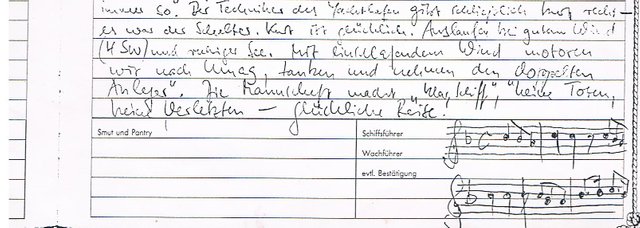 immer so. Der Techniker des Yachthafen gibt schließlich Kurt recht:
es war der Schalter. Kurt ist glücklich. Auslaufen bei gutem Wind
(4 SW) und ruhiger See. Mit einschlafendem Wind motoren
wir nach Umag, tanken und nehmen den "doppelten
Anleger". Die Mannschaft macht "klar Schiff", "keine Toten,
keine Verletzten — glückliche Reise.
Smut und Pantry
Schiffsführer
Wachführer
evtl. Bestätigung